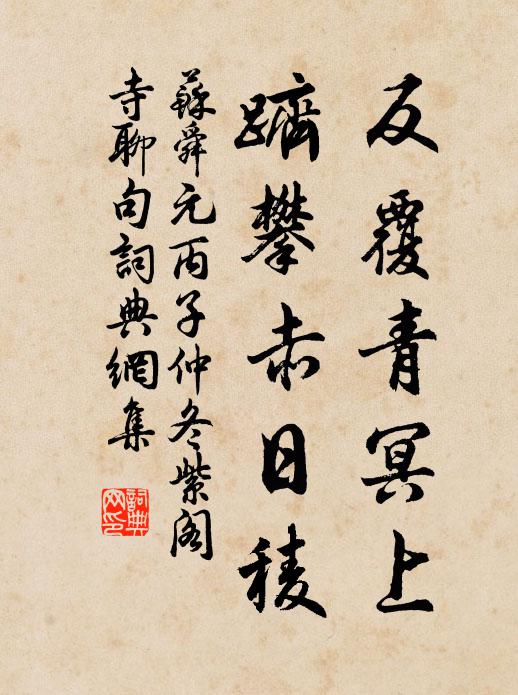 反覆青冥上
躋攀赤日稜
蘇舜元丙子仲冬紫阁
寺聊句詞典網集
詞典
网印